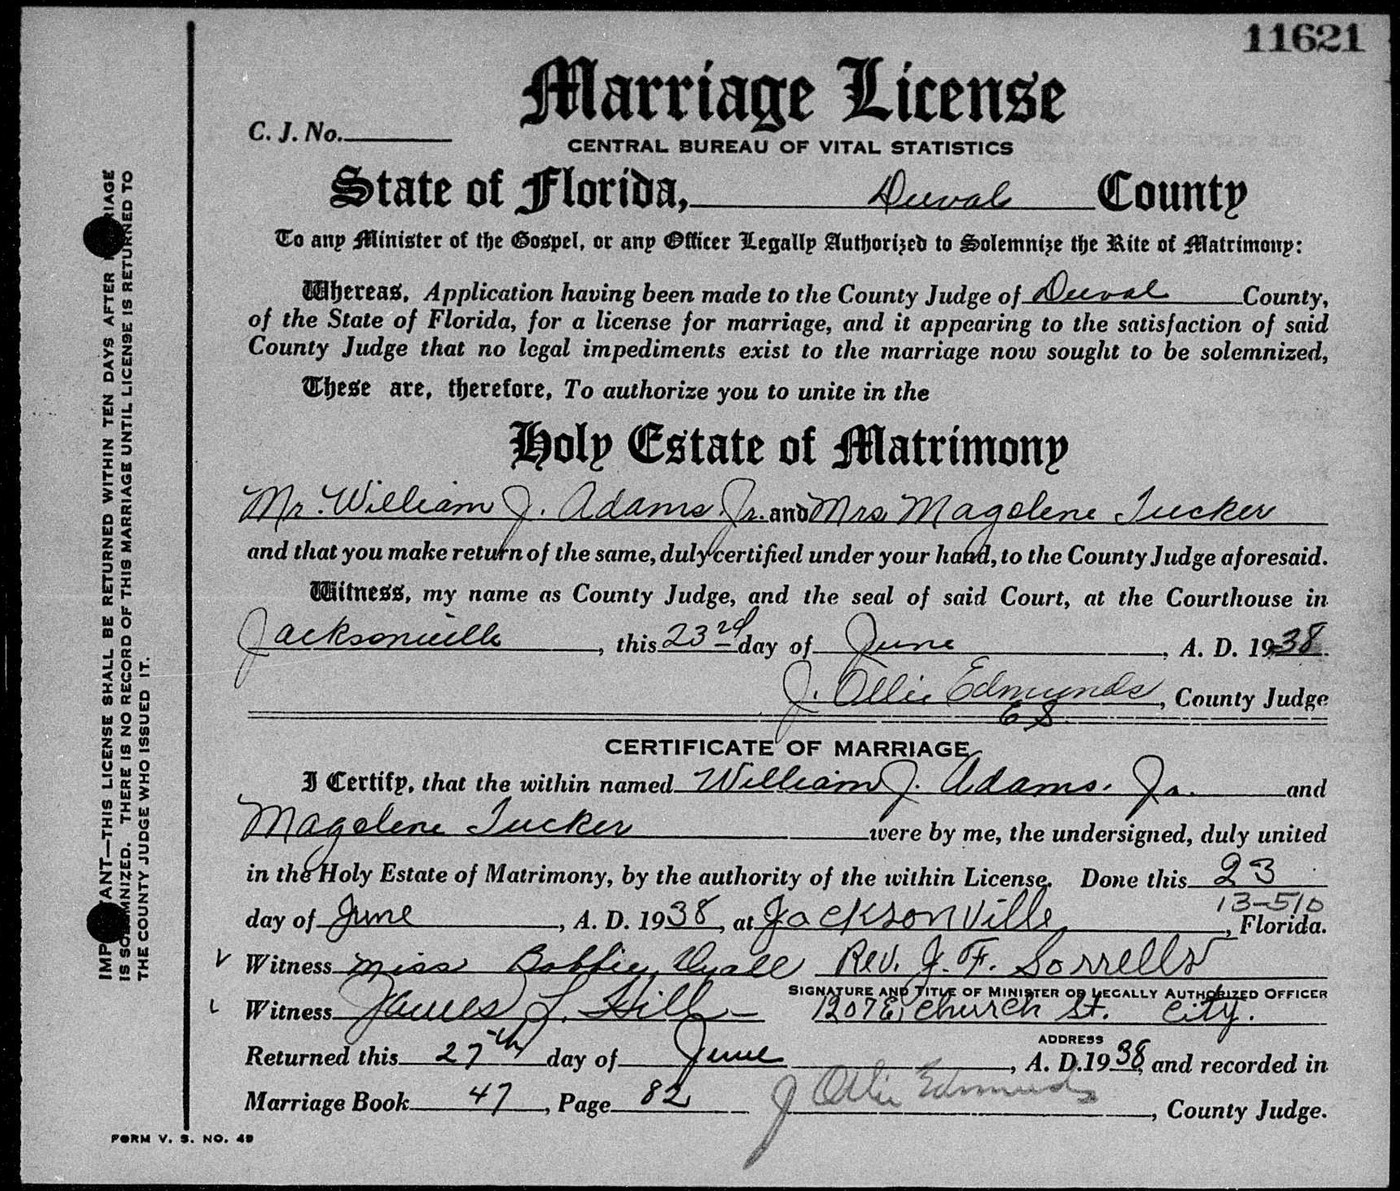 11621
Marriage License
C. J. No.
CENTRAL BUREAU OF VITAL STATISTICS
State of Florida, Duval County
To any Minister of the Gospel, or any Officer Legally Authorized to Solemnize the Rite of Matrimony:
Whereas, Application having been made to the County Judge of Duval County,
of the State of Florida, for a license for marriage, and it appearing to the satisfaction of said
County Judge that no legal impediments exist to the marriage now sought to be solemnized,
These are, therefore, To authorize you to unite in the
Holy Estate of Matrimony
Mr. William J. Adams Jr. and Mrs Magolene Tucker
and that you make return of the same, duly certified under your hand, to the County Judge aforesaid.
Witness, my name as County Judge, and the seal of said Court, at the Courthouse in
Jacksonville, this 23rd day of June, A. D. 1938.
J. Ollie Edmunds, County Judge
ES
CERTIFICATE OF MARRIAGE
I Certify, that the within named William J. Adams. Jr. and
Magolene Tucker were by me, the undersigned, duly united
in the Holy Estate of Matrimony, by the authority of the within License. Done this 23
13-510
day of June, A. D. 1938, at Jacksonville, Florida.
Witness Miss Bobbie Dyall Rev. J. F. Sorrells
SIGNATURE AND TITLE OF MINISTER OR LEGALLY AUTHORIZED OFFICER
Witness James L. Hill 1207 E. Church St. City.
ADDRESS
Returned this 27th day of June, A. D. 1938, and recorded in
Marriage Book 47, Page 82 J Ollie Edmunds, County Judge.
FORM V. S. NO. 49
IMP ANT—THIS LICENSE SHALL BE RETURNED WITHIN TEN DAYS AFTER RIAGE
IS SOLEMNIZED. THERE IS NO RECORD OF THIS MARRIAGE UNTIL LICENSE IS RETURNED TO
THE COUNTY JUDGE WHO ISSUED IT.